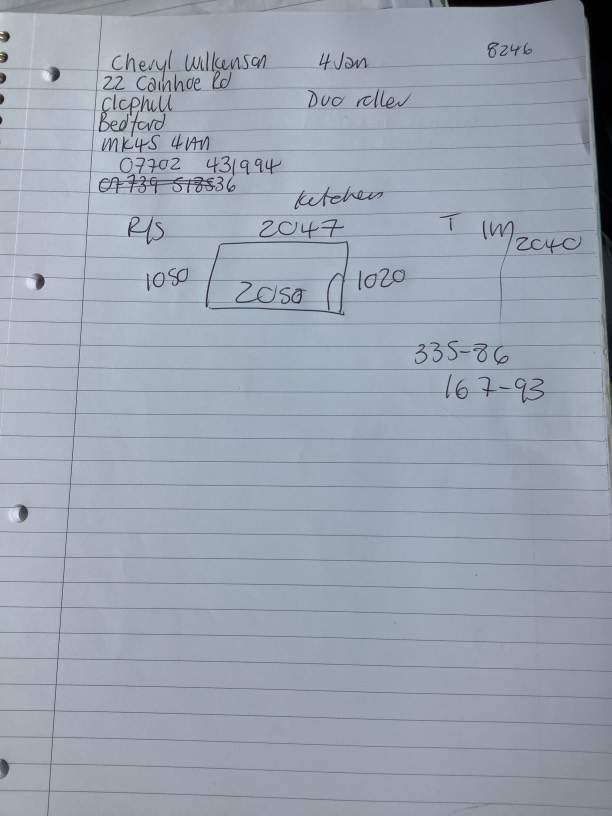 Cheryl Wilkinson 4 Jan 8246
22 Cainhoe Rd
Clophill Duo roller
Bedford
MK45 4AN
07702 431994
07739 518536
Kitchen
R/S 2047 T 1M/2040
1050 2050 1020
335-86
167-93